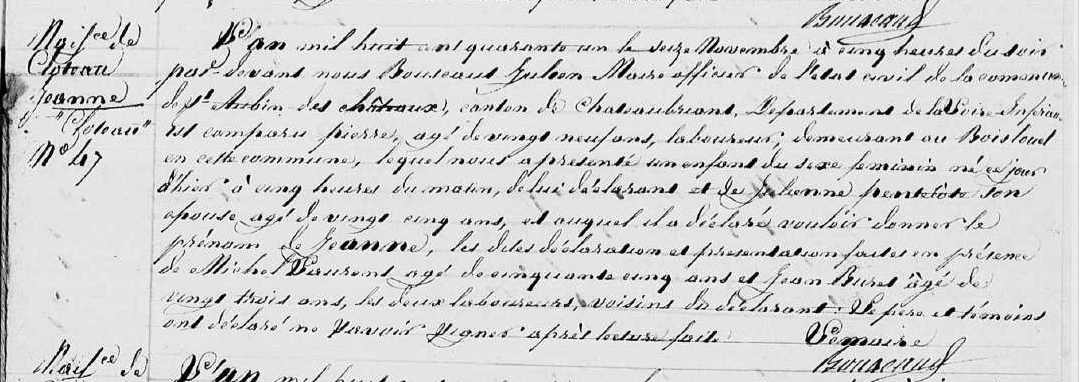 Bouscaud
Naisce de
Cloteau
Jeanne
"Cloteau"
No 47
L'an mil huit cent quarante un le seize Novembre à cinq heures du soir
par devant nous Julien Maire officier de l'état civil de la commune
de St Aubin des châteaux, canton de Chateaubriant, Département de la Loire Inférieure
est comparu pierre, agé de vingt neuf ans, laboureur, demeurant au
en cette commune, lequel nous a présenté un enfant du sexe feminin né ce jour
d'hier à cinq heures du matin, de lui déclarant et de Julienne son
épouse, agé de vingt cinq ans, et auquel il a déclaré vouloir donner le
prénom de Jeanne, les dites déclaration et présentation faites en présence
de Michel Laurent agé de cinquante cinq ans et Jean Buret âgé de
vingt trois ans, les deux laboureurs, voisins du déclarant. Le père et témoins
ont déclaré ne savoir signer après lecture fait. Le maire
Bouscaud
Naisce de
L'an mil huit